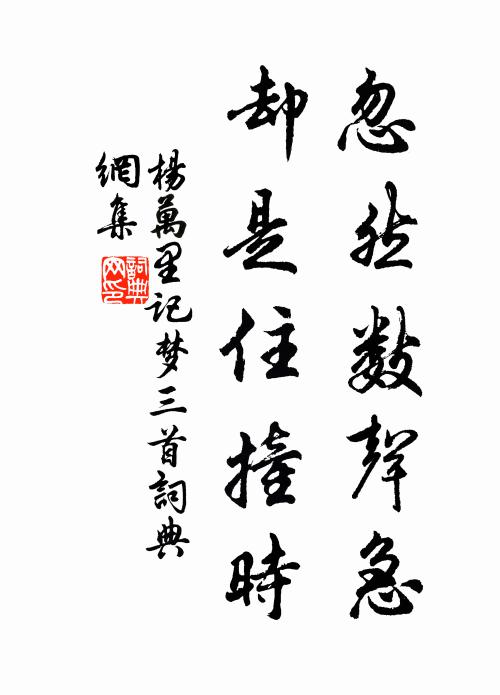 忽然數聲急
却是住撞時
楊萬里記梦三首詞典
網集
詞典
网印